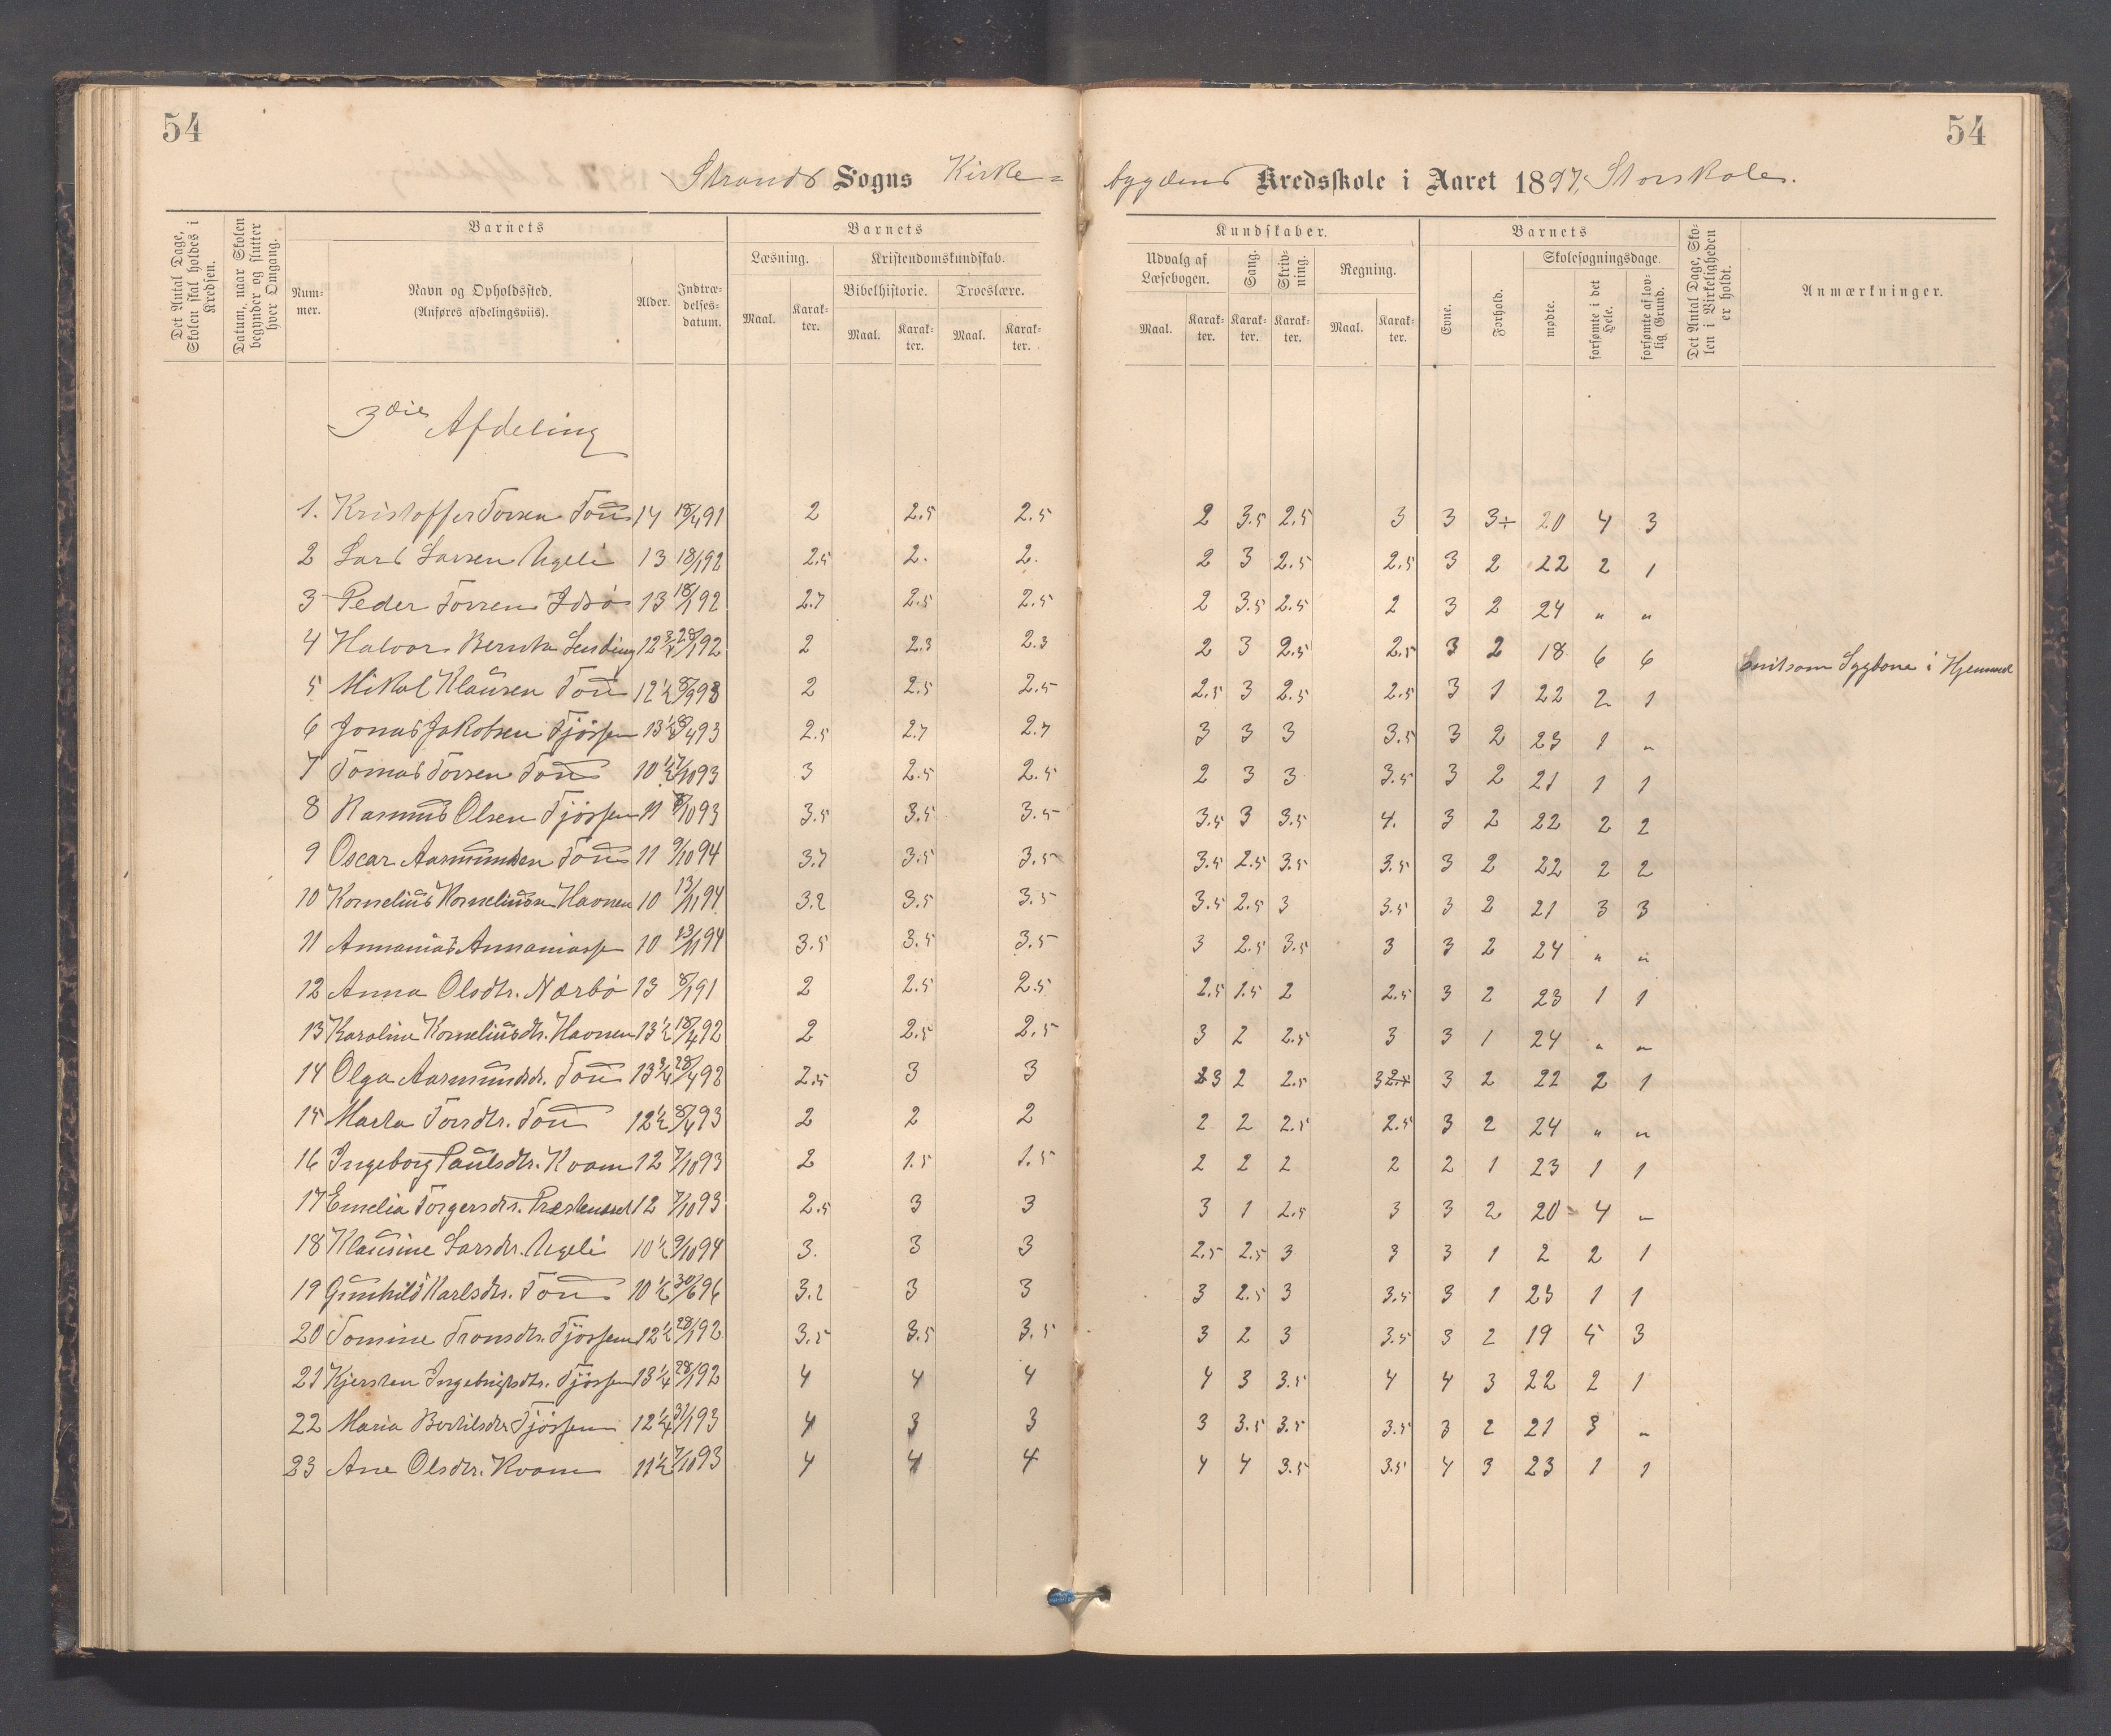 54
54
Strands Sogns Kirke=
bygdens Kredsskole i Aaret 1897, Storskolen.
Det Antal Dage, Skolen skal holdes i Kredsen.
Datum, naar Skolen begynder og slutter hver Omgang.
Barnets
Nummer.
Navn og Opholdssted. (Anføres afdelingsviis).
Alder.
Indtrædelsesdatum.
Barnets
Læsning.
Kristendomskundskab.
Bibelhistorie.
Troeslære.
Maal. Karakter. Maal. Karakter. Maal. Karakter.
Kundskaber.
Udvalg af Læsebogen.
Sang.
Skrivning.
Regning.
Maal. Karakter. Karakter. Karakter. Maal. Karakter.
Barnets
Evne.
Forhold.
Skolesøgningsdage.
mødte.
forsømte i det Hele.
forsømte af lovlig Grund.
Det Antal Dage, Skolen i Virkeligheden er holdt.
Anmærkninger.
3die Afdeling
1. Kristoffer Torsen Tou 14 18/4 91 2 2.5 2.5 2 3.5 2.5 3 3 3÷ 20 4 3
2 Lars Larsen Ugeli 13 18/1 92 2.5 2. 2. 2 3 2.5 2.5 3 2 22 2 1
3 Peder Torsen Idsö 13 18/1 92 2.7 2.5 2.5 2 3.5 2.5 2 3 2 24 " "
4 Halvor 12 3/4 28/1 92 2 2.3 2.3 2 3 2.5 2.5 3 2 18 6 6 i Hjemmet
5 Mikal Klausen Tou 12 1/2 2 2.5 2.5 2.5 3 2.5 2.5 3 1 22 2 1
6 Jonas Jakobsen Tjössem 13 1/2 8/4 93 2.5 2.7 2.7 3 3 3 3.5 3 2 23 1 "
7 Tomas Torsen Tou 10 1/2 17/10 93 3 2.5 2.5 2 3 3 3.5 3 2 21 1 1
8 Rasmus Olsen Tjössem 11 7/10 93 3.5 3.5 3.5 3.5 3 3.5 4. 3 2 22 2 2
9 Oscar Aasmundsen Tou 11 9/10 94 3.7 3.5 3.5 3.5 2.5 3.5 3.5 3 2 22 2 2
10 Kornelius Korneliusen Havnen 10 13/11 94 3.2 3.5 3.5 3.5 2.5 3 3.5 3 2 21 3 3
11 Annanias Annaniassen 10 13/11 94 3.5 3.5 3.5 3 2.5 3.5 3 3 2 24 " "
12 Anna Olsdtr. Nærbö 13 8/1 91 2 2.5 2.5 2.5 1.5 2 2.5 3 2 23 1 1
13 Karoline Korneliusdtr. Havnen 13 1/2 18/4 92 2 2.5 2.5 3 2 2.5 3 3 1 24 " "
14 Olga Aasmundsdr. Tou 13 3/4 28/4 92 2.5 3 3 3 2 2.5 3 3 2 22 2 1
15 Marta Torsdtr. Tou 12 1/2 8/4 93 2 2 2 2 2 2.5 2.5 3 2 24 " "
16 Ingeborg Paulsdtr. Kvam 12 7/10 93 2 1.5 1.5 2 2 2 2 2 1 23 1 1
17 Emelia Torgersdtr. 12 7/10 93 2.5 3 3 3 1 2.5 3 3 2 20 4 "
18 Klausine Larsdtr. Ugeli 10 1/2 9/10 94 3. 3 3 2.5 2.5 3 3 3 1 2 2 1
19 Gunhild Karlsdtr. Tou 10 1/2 30/6 96 3.2 3 3 3 2.5 3 3.5 3 1 23 1 1
20 Tomine Tronsdtr. Tjössem 12 1/2 28/1 92 3.5 3.5 3.5 3 2 3 3.5 3 2 19 5 3
21 Kjersten Ingebrigtsdtr. Tjössem 13 1/4 28/1 92 4 4 4 4 3 3.5 4 4 3 22 2 1
22 Maria Bertilsdtr Tjössem 12 1/4 31/1 93 4 3 3 3 3.5 3.5 3.5 3 2 21 3 "
23 Ane Olsdtr. Kvam 11 1/2 7/10 93 4 4 4 4 4 3.5 3.5 4 3 23 1 1